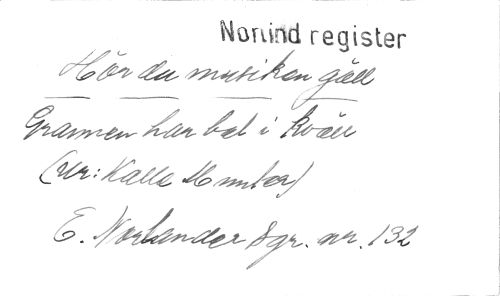 Nonind register
Hör du musiken gäll
Grannen har bal i kväll
(Ur: Kalle Munter)
E. Norlander Sgr. nr. 132